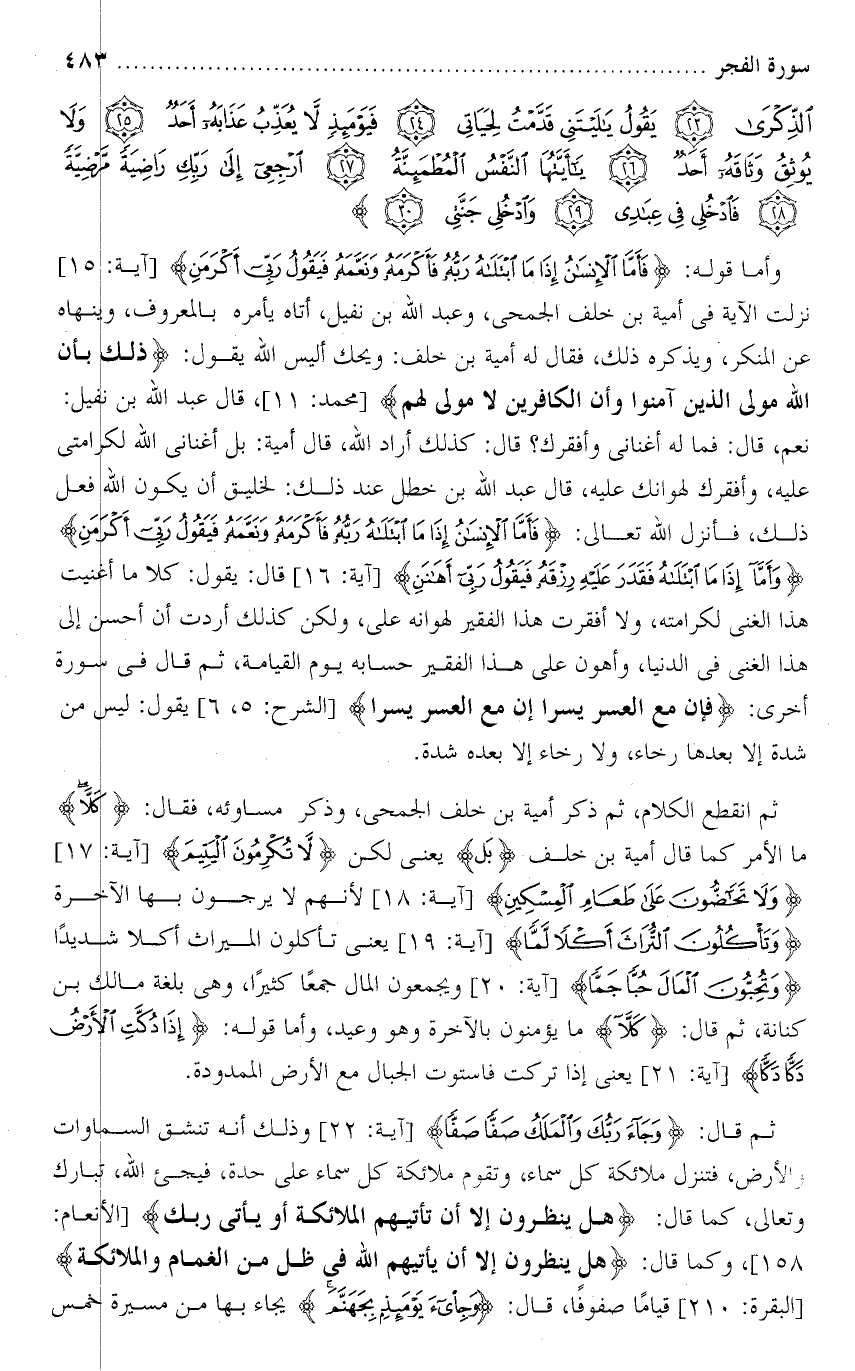 سورة الفجر ................................................................ ٤٨٣
ٱلذِّكْرَىٰ ﴿٢٣﴾ يَقُولُ يَٰلَيْتَنِى قَدَّمْتُ لِحَيَاتِى ﴿٢٤﴾ فَيَوْمَئِذٍ لَّا يُعَذِّبُ عَذَابَهُۥٓ أَحَدٌ ﴿٢٥﴾ وَلَا
يُوثِقُ وَثَاقَهُۥٓ أَحَدٌ ﴿٢٦﴾ يَٰٓأَيَّتُهَا ٱلنَّفْسُ ٱلْمُطْمَئِنَّةُ ﴿٢٧﴾ ٱرْجِعِىٓ إِلَىٰ رَبِّكِ رَاضِيَةً مَّرْضِيَّةً
﴿٢٨﴾ فَٱدْخُلِى فِى عِبَٰدِى ﴿٢٩﴾ وَٱدْخُلِى جَنَّتِى ﴿٣٠﴾ ﴾
وأما قوله: ﴿فَأَمَّا ٱلْإِنسَٰنُ إِذَا مَا ٱبْتَلَىٰهُ رَبُّهُۥ فَأَكْرَمَهُۥ وَنَعَّمَهُۥ فَيَقُولُ رَبِّىٓ أَكْرَمَنِ﴾ [آية: ١٥]
نزلت الآية فى أمية بن خلف الجمحى، وعبد الله بن نفيل، أتاه يأمره بالمعروف، وينهاه
عن المنكر، ويذكره ذلك، فقال له أمية بن خلف: ويحك أليس الله يقول: ﴿ذلك بأن
الله مولى الذين آمنوا وأن الكافرين لا مولى لهم﴾ [محمد: ١١]، قال عبد الله بن نفيل:
نعم، قال: فما له أغنانى وأفقرك؟ قال: كذلك أراد الله، قال أمية: بل أغنانى الله لكرامتى
عليه، وأفقرك لهوانك عليه، قال عبد الله بن خطل عند ذلك: لخليق أن يكون الله فعل
ذلك، فأنزل الله تعالى: ﴿فَأَمَّا ٱلْإِنسَٰنُ إِذَا مَا ٱبْتَلَىٰهُ رَبُّهُۥ فَأَكْرَمَهُۥ وَنَعَّمَهُۥ فَيَقُولُ رَبِّىٓ أَكْرَمَنِ﴾
﴿وَأَمَّآ إِذَا مَا ٱبْتَلَىٰهُ فَقَدَرَ عَلَيْهِ رِزْقَهُۥ فَيَقُولُ رَبِّىٓ أَهَٰنَنِ﴾ [آية: ١٦] قال: يقول: كلا ما أغنيت
هذا الغنى لكرامته، ولا أفقرت هذا الفقير لهوانه على، ولكن كذلك أردت أن أحسن إلى
هذا الغنى فى الدنيا، وأهون على هذا الفقير حسابه يوم القيامة، ثم قال فى سورة
أخرى: ﴿فإن مع العسر يسرا إن مع العسر يسرا﴾ [الشرح: ٥، ٦] يقول: ليس من
شدة إلا بعدها رخاء، ولا رخاء إلا بعده شدة.
ثم انقطع الكلام، ثم ذكر أمية بن خلف الجمحى، وذكر مساوئه، فقال: ﴿كَلَّا﴾
ما الأمر كما قال أمية بن خلف ﴿بَل﴾ يعنى لكن ﴿لَّا تُكْرِمُونَ ٱلْيَتِيمَ﴾ [آية: ١٧]
﴿وَلَا تَحَٰٓضُّونَ عَلَىٰ طَعَامِ ٱلْمِسْكِينِ﴾ [آية: ١٨] لأنهم لا يرجون بها الآخرة
﴿وَتَأْكُلُونَ ٱلتُّرَاثَ أَكْلًا لَّمًّا﴾ [آية: ١٩] يعنى تأكلون الميراث أكلا شديدًا
﴿وَتُحِبُّونَ ٱلْمَالَ حُبًّا جَمًّا﴾ [آية: ٢٠] ويجمعون المال جمعًا كثيرًا، وهى بلغة مالك بن
كنانة، ثم قال: ﴿كَلَّآ﴾ ما يؤمنون بالآخرة وهو وعيد، وأما قوله: ﴿إِذَا دُكَّتِ ٱلْأَرْضُ
دَكًّا دَكًّا﴾ [آية: ٢١] يعنى إذا تركت فاستوت الجبال مع الأرض الممدودة.
ثم قال: ﴿وَجَآءَ رَبُّكَ وَٱلْمَلَكُ صَفًّا صَفًّا﴾ [آية: ٢٢] وذلك أنه تنشق السماوات
والأرض، فتنزل ملائكة كل سماء، وتقوم ملائكة كل سماء على حدة، فيجئ الله، تبارك
وتعالى، كما قال: ﴿هل ينظرون إلا أن تأتيهم الملائكة أو يأتى ربك﴾ [الأنعام:
١٥٨]، وكما قال: ﴿هل ينظرون إلا أن يأتيهم الله فى ظل من الغمام والملائكة﴾
[البقرة: ٢١٠] قيامًا صفوفًا، قال: ﴿وَجِا۟ىٓءَ يَوْمَئِذٍۭ بِجَهَنَّمَ﴾ يجاء بها من مسيرة خمس